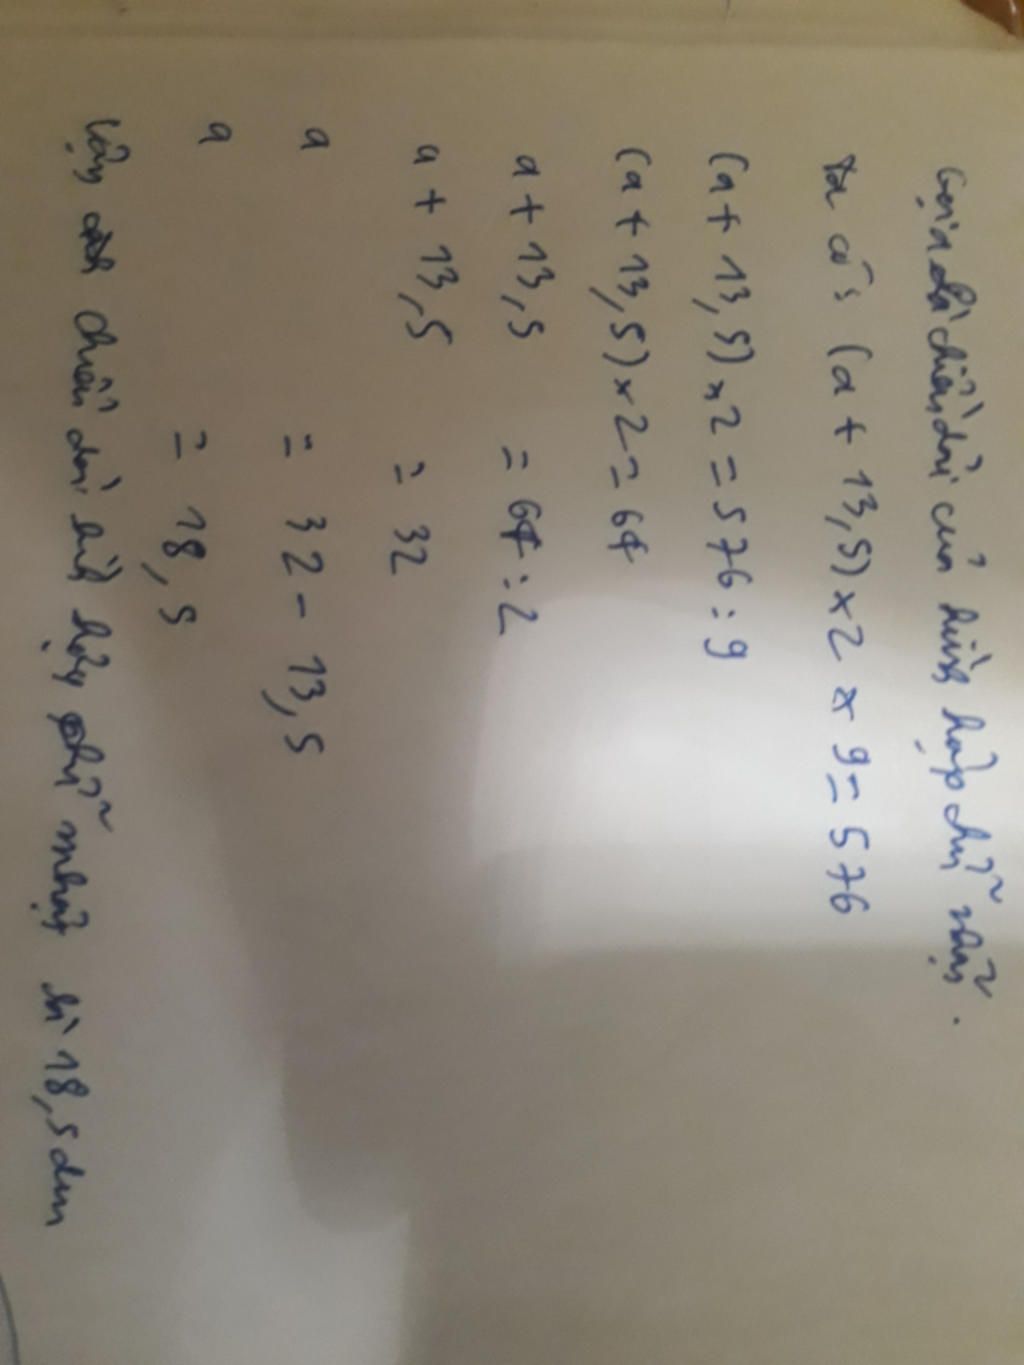 Gọi a là chiều dài của hình hộp chữ nhật.
ta có: (a + 13,5) x 2 x 9 = 576
(a + 13,5) x 2 = 576 : 9
(a + 13,5) x 2 = 64
a + 13,5 = 64 : 2
a + 13,5 = 32
a = 32 - 13,5
a = 18,5
Vậy chiều dài hình hộp chữ nhật là 18,5 dm